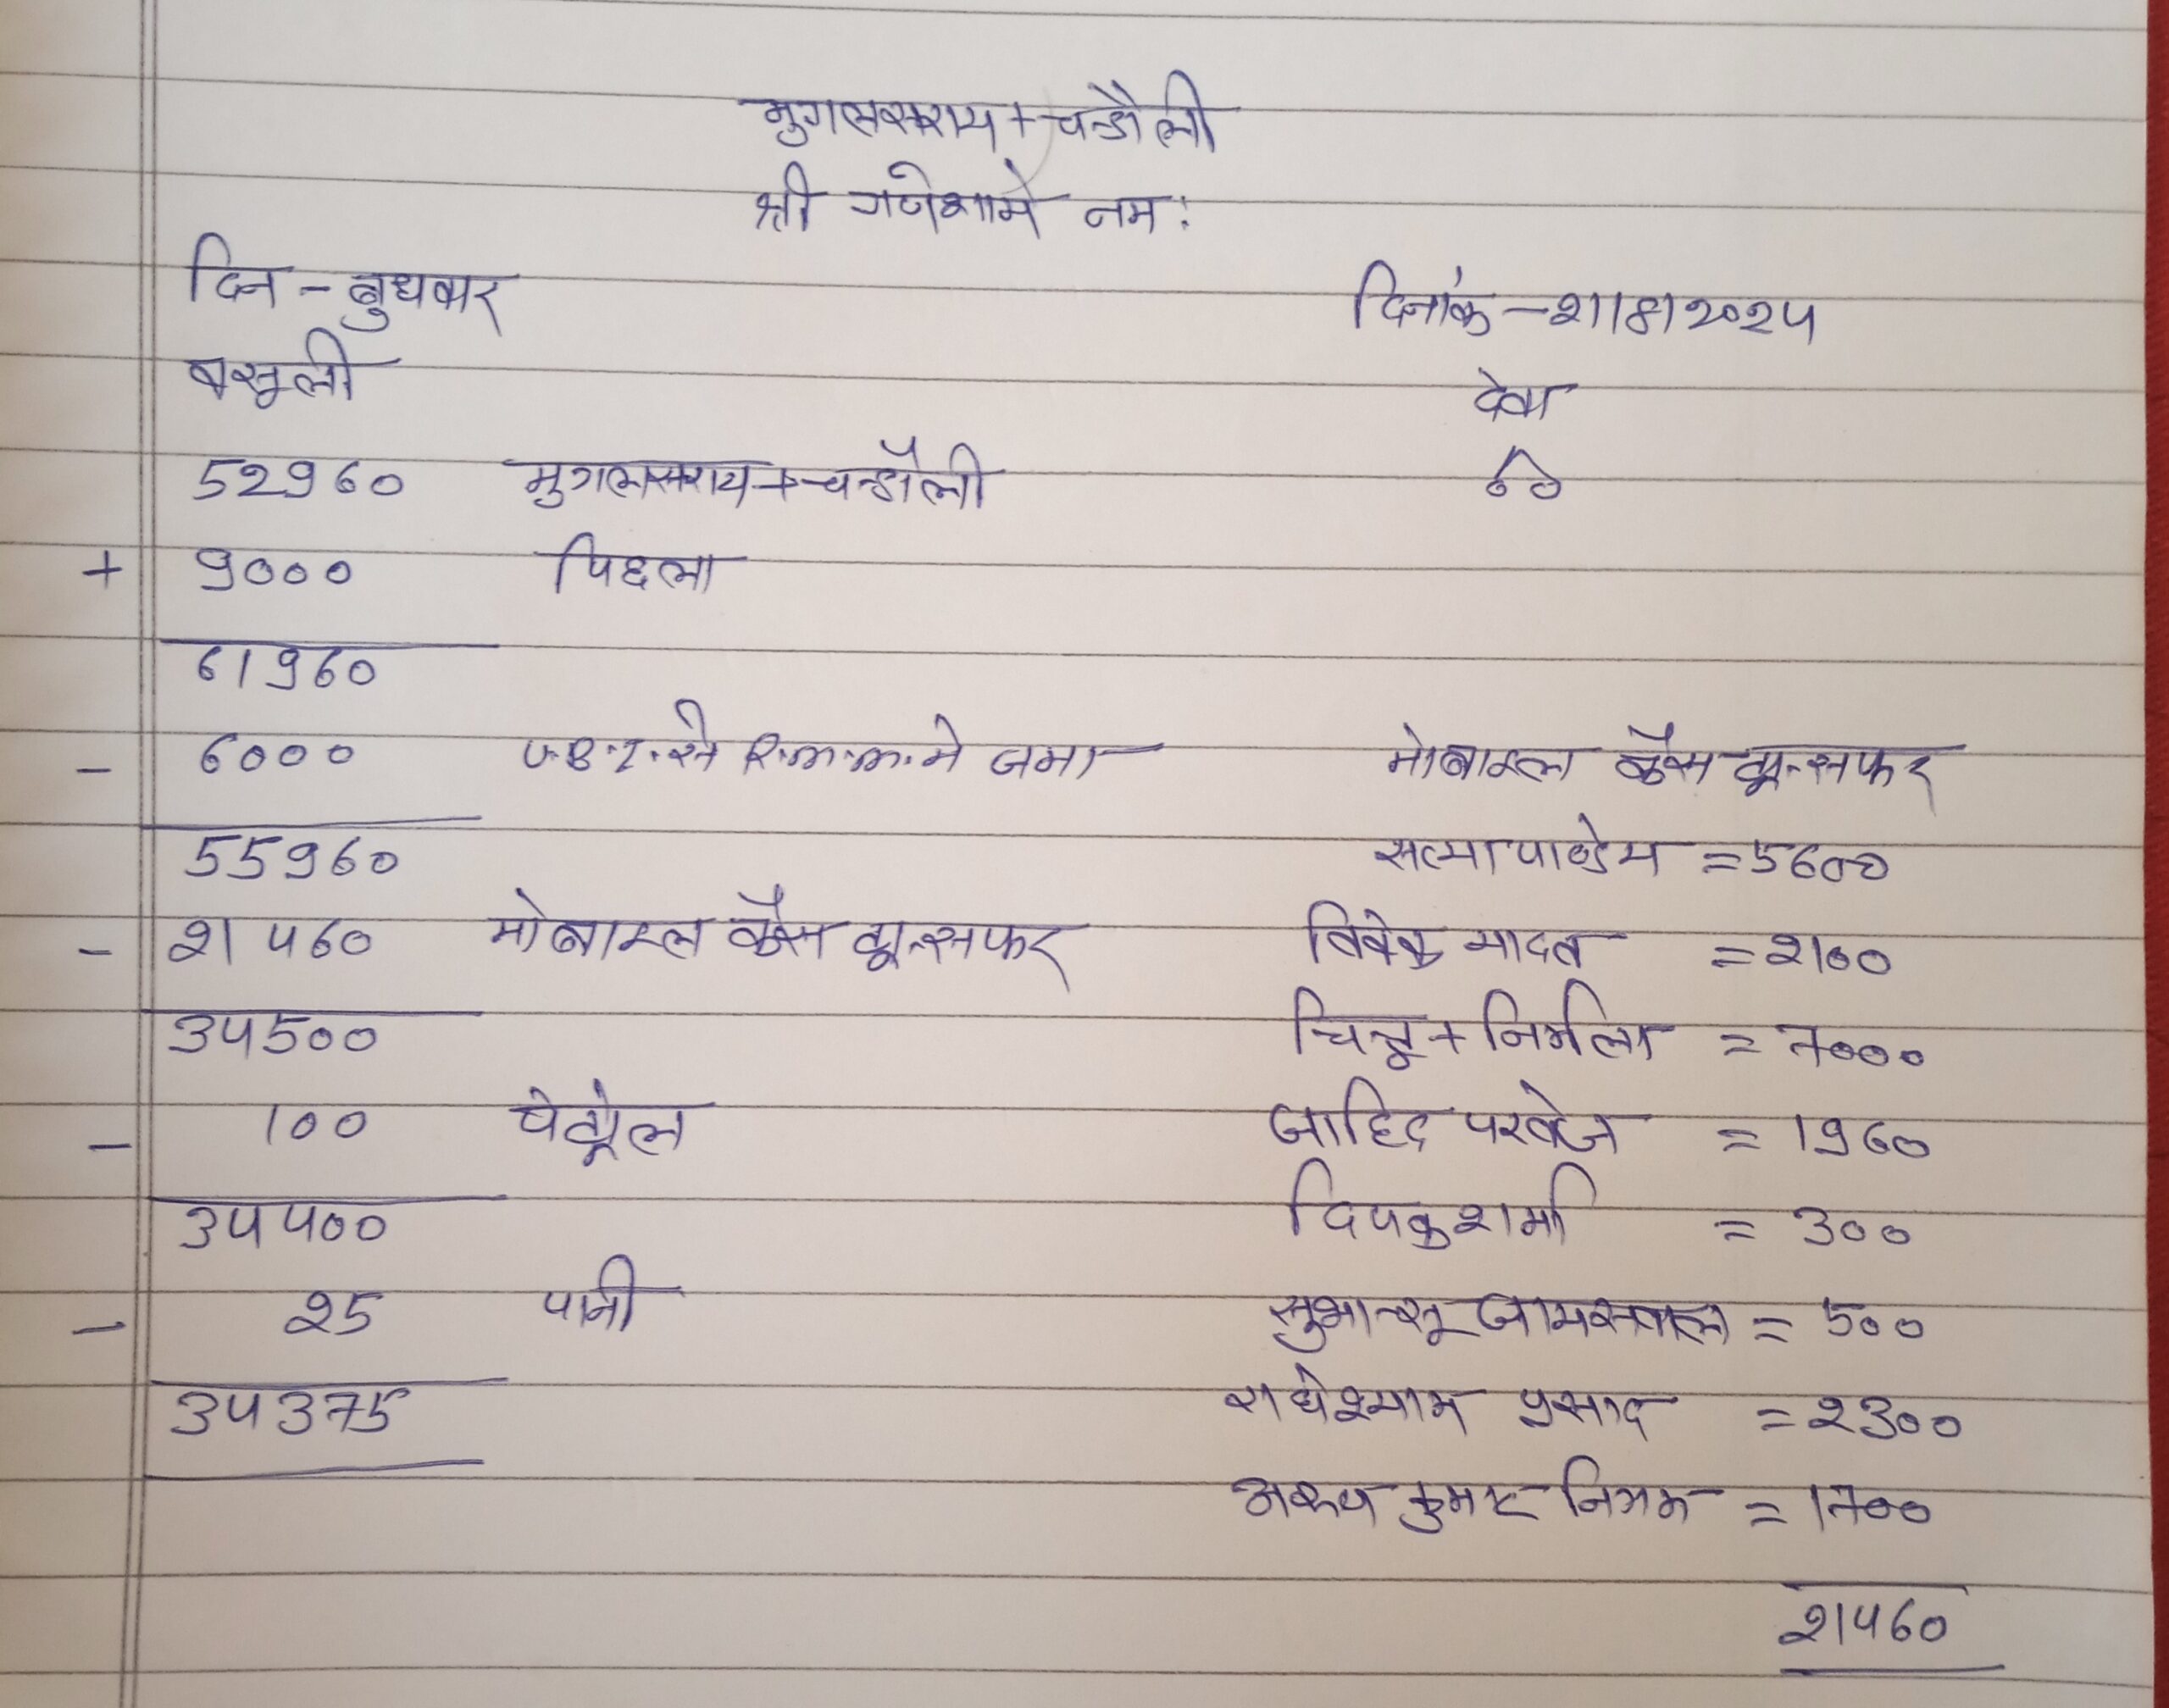 मुगलसराय + चन्डौली
श्री गणेशाये नम:
दिन - बुधवार
दिनांक - 21/8/2024
वसूली
देवा
52960 मुगलसराय + चन्डौली
00
+ 9000 पिछला
61960
- 6000 U.B.I. से R.m.m. मे जमा
मोबाइल कैस ट्रान्सफर
55960
सत्या पाण्डेय = 5600
- 21460 मोबाइल कैस ट्रान्सफर
विवेक यादव = 2100
34500
चिन्टू + निर्मला = 7000
- 100 पेट्रोल
जाहिद परवेज = 1960
34400
दिपक शर्मा = 300
- 25 पानी
सुभान्सू जायसवाल = 500
34375
राधेश्याम प्रसाद = 2300
अरूण कुमार निगम = 1700
21460